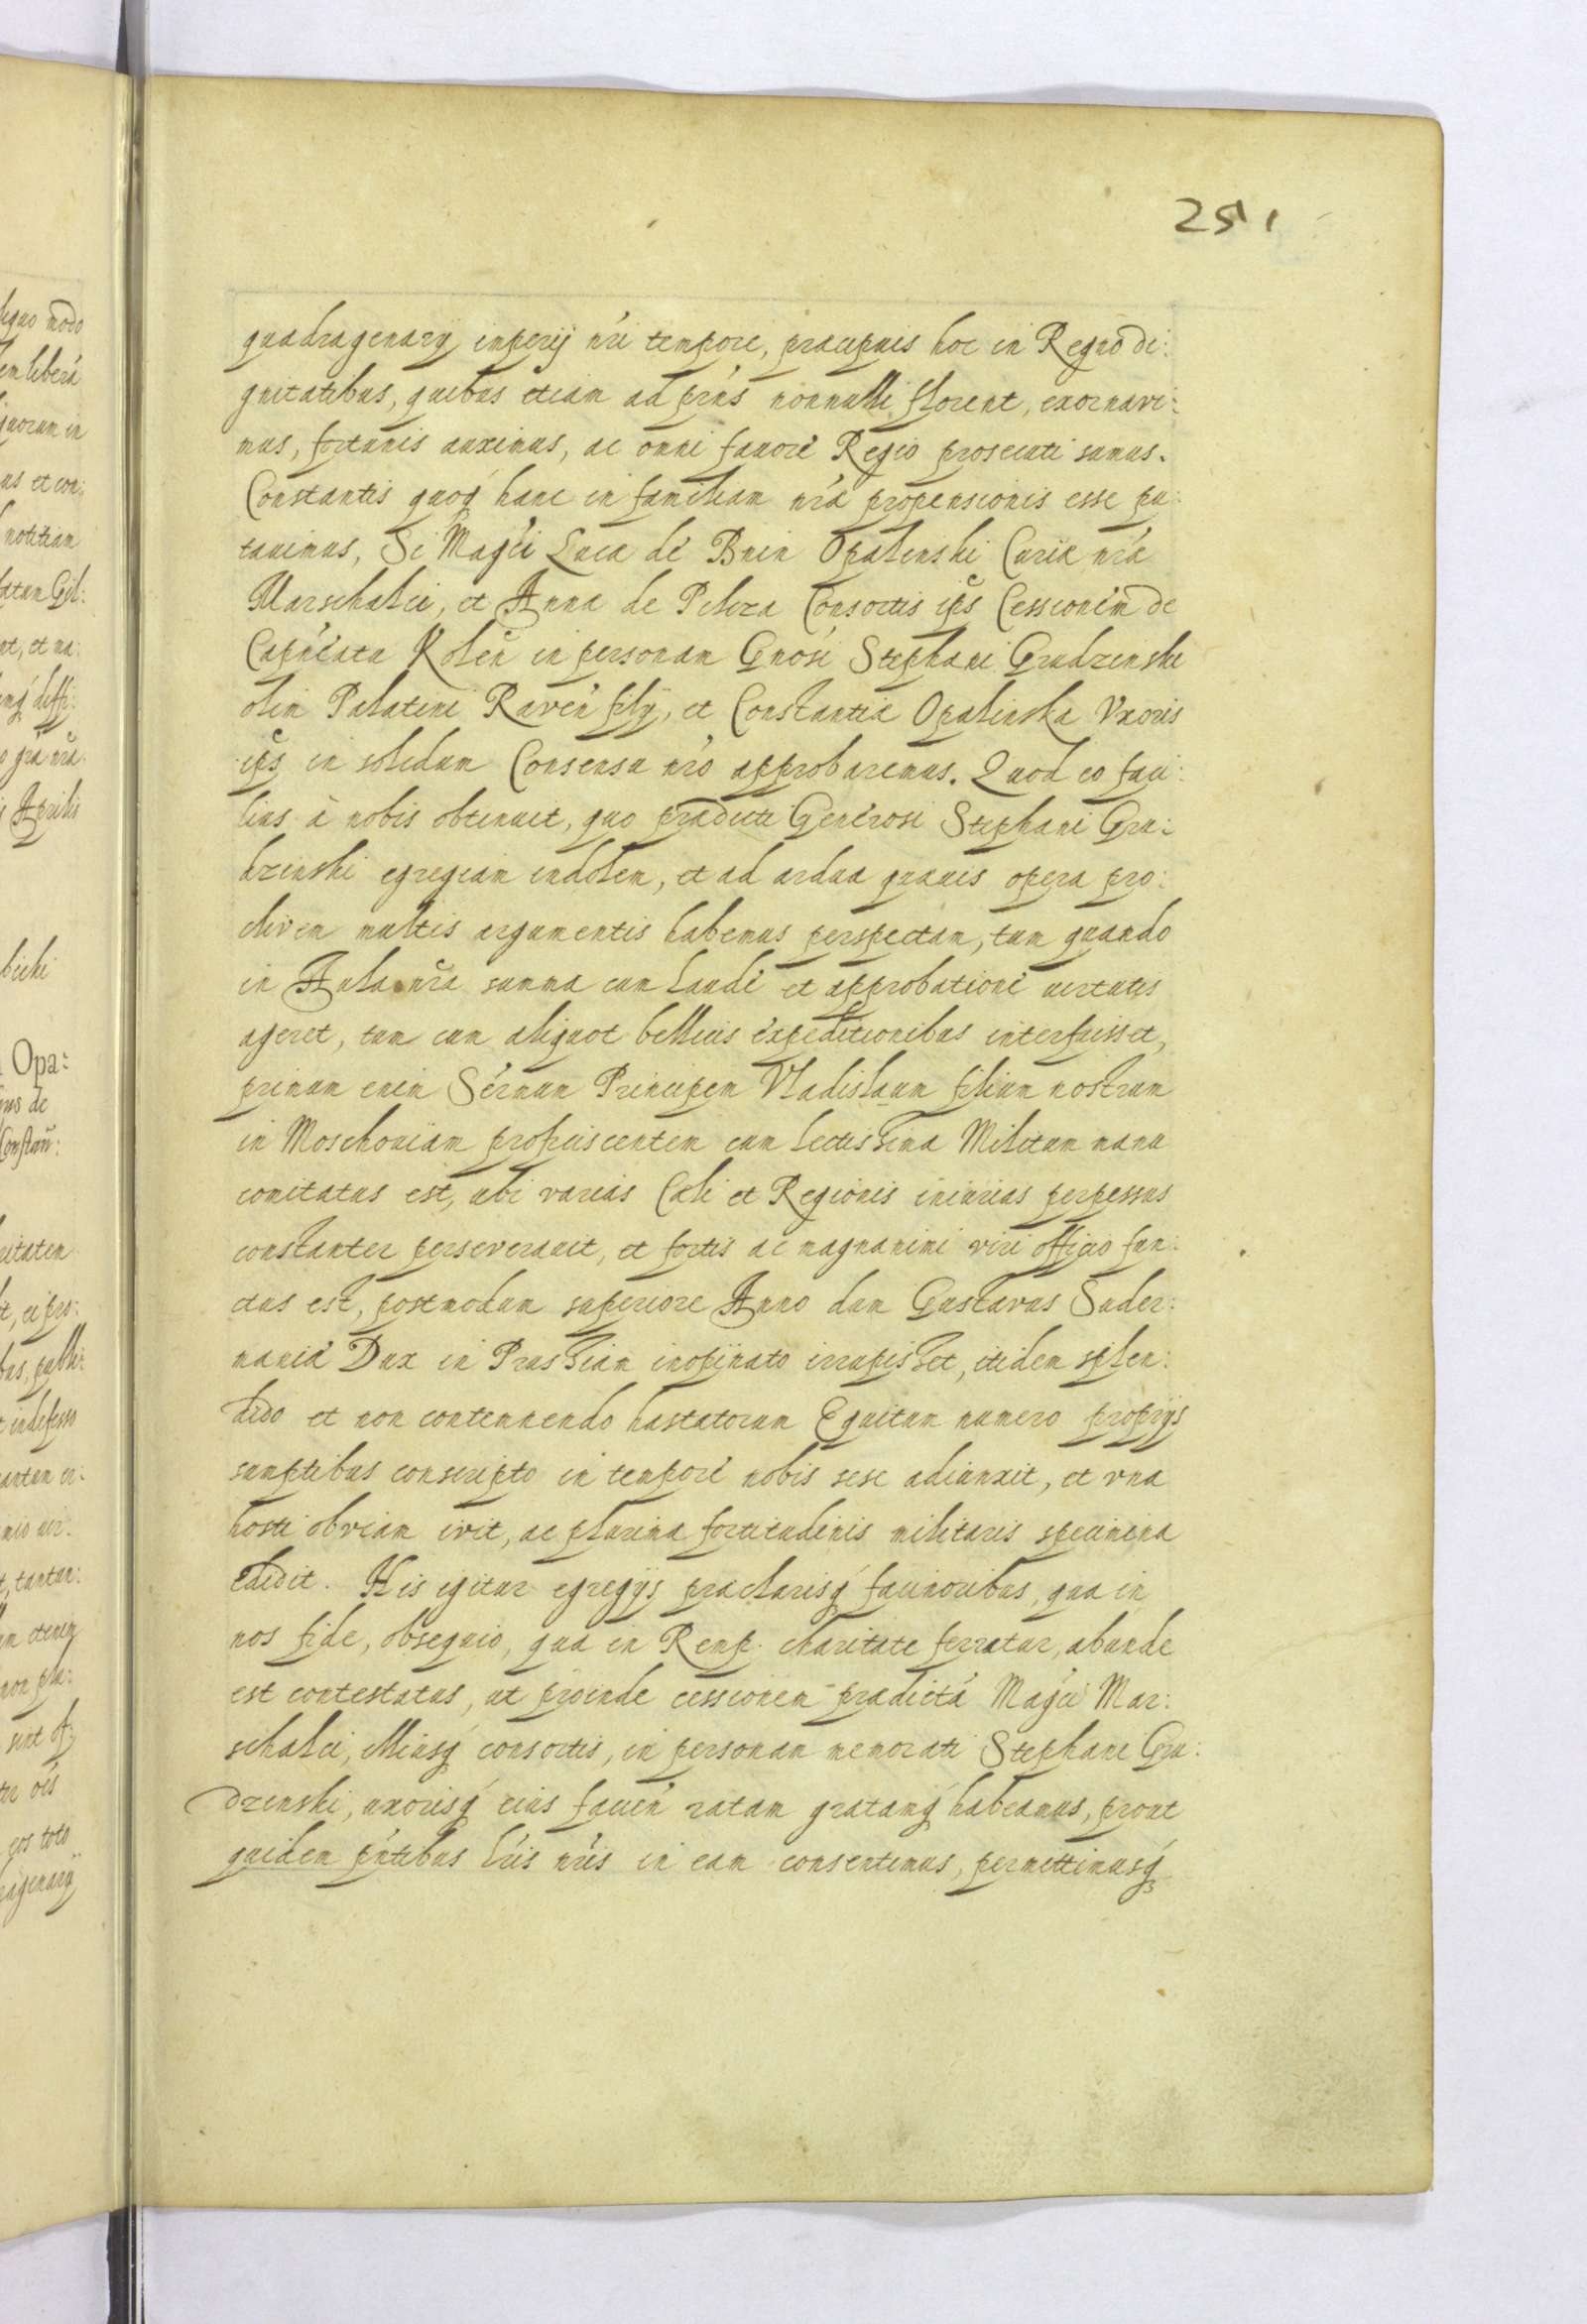 251
quadragenarij imperij nr̃i tempore, praecipuis hoc in Regno di:
gnitatibus, quibus etiam ad prñs nonnulli florent, exornavi:
mus, fortunis auximus, ac omni fauore Regio prosecuti sumus.
Constantis quoq́ hanc in familiam nr̃a propensionis esse pu:
tauimus, Si Mag̃ci Luca de Bnin Opalenski Curiæ nr̃a
Marschalci, et Anna de Pilcza Consortis ip̃s Cessionem de
Cap̃neatu Kolen̄ in personam Gnosi Stephani Grudzinski
olim Palatini Raven̄ filij, et Constantiæ Opalinska Vxoris
ip̃s in solidum Consensu nr̃o approbaremus. Quod eo faci:
lius à nobis obtinuit, quo prædicti Generosi Stephani Gru:
dzinski egregiam indolem, et ad ardua quæuis opera pro:
clivem multis argumentis habemus perspectam, tum quando
in Aula nr̃a summa cum laude et approbatione uirtutis
ageret, tum cum aliquot bellicis expeditionibus interfuisset,
primum enim Sermum Principem Vladislaum filium nostrum
in Moschouiam proficiscentem cum lectissima Militum manu
comitatus est, ubi varias Cæli et Regionis iniurias perpessus
constanter perseverauit, et fortis ac magnanimi viri officio fun:
ctus est, postmodum superiore Anno dum Gustavus Suder:
maniæ Dux in Prussiam inopinato irrupisset, itidem splen:
dido et non contemnendo hastatorum Equitum numero proprijs
sumptibus conscripto in tempore nobis sese adiunxit, et vna
hosti obviam ivit, ac plurima fortitudinis militaris specimina
edidit. His igitur egregijs præclarisq́ facinoribus, qua in
nos fide, obsequio, qua in Remp. charitate ferratur, abunde
est contestatus, ut proinde cessionem prædictá Mag̃ci Mar:
schalci, illiusq́ consortis, in personam memorati Stephani Gru:
dzinski, uxorisq́ eius faueñ ratam gratamq́ habeamus, prout
quidem p̃ntibus lr̃is nr̃is in eam consentimus, permittimusq́